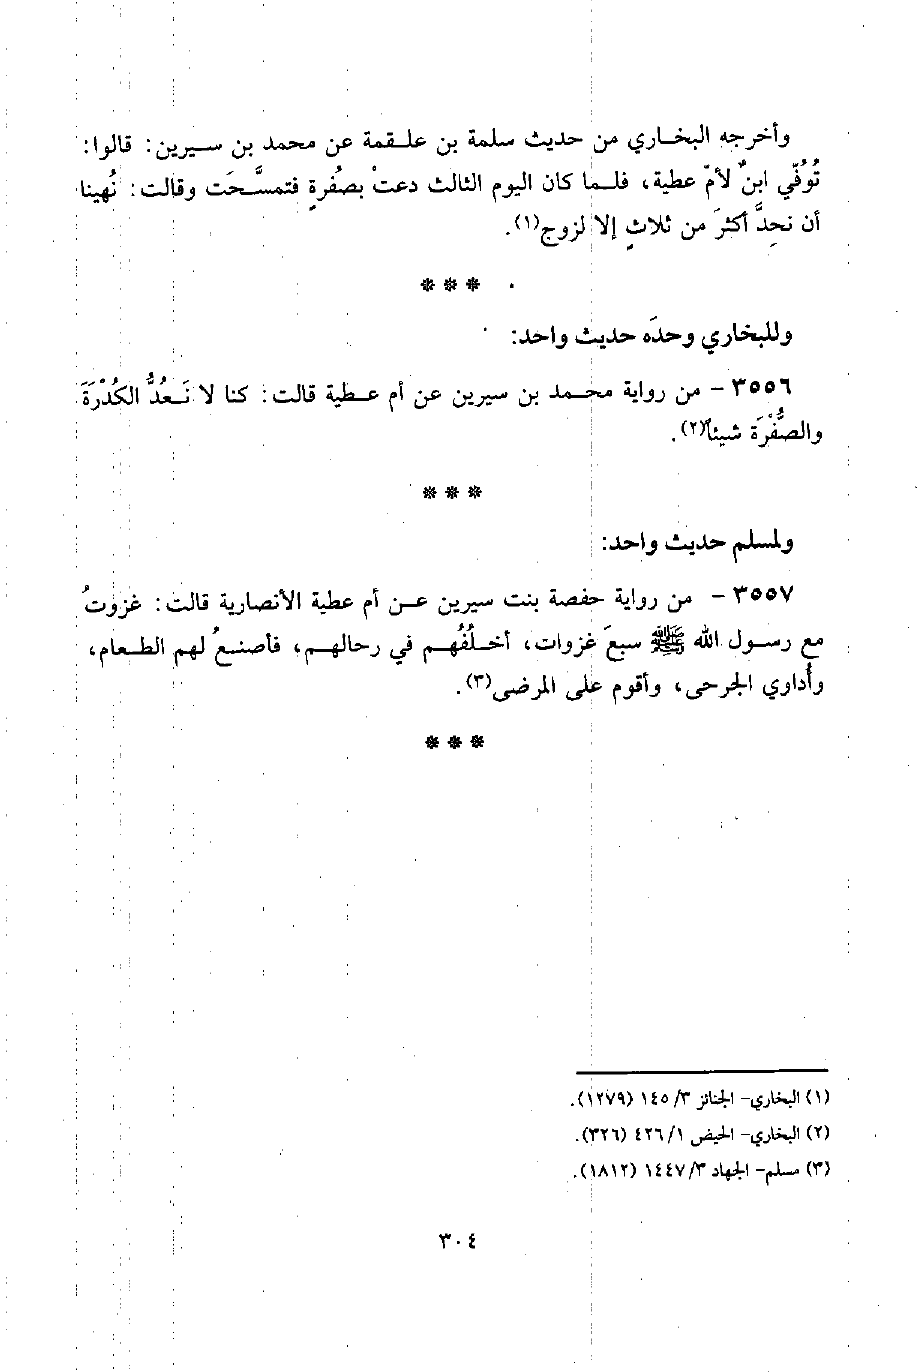 وأخرجه البخاري من حديث سلمة بن علقمة عن محمد بن سيرين: قالوا:
تُوُفّي ابنٌ لأمّ عطية، فلما كان اليوم الثالث دعتْ بصُفرةٍ فتمسَّحَت وقالت: نُهينا
أن نحِدَّ أكثرَ من ثلاثٍ إلا لزوج(١).
* * *
وللبخاري وحدَه حديث واحد:
٣٥٥٦ - من رواية محمد بن سيرين عن أم عطية قالت: كنا لا نَعُدُّ الكُدْرَةَ
والصُّفْرَة شيئاً(٢).
* * *
ولمسلم حديث واحد:
٣٥٥٧ - من رواية حفصة بنت سيرين عن أم عطية الأنصارية قالت: غزوتُ
مع رسول الله ﷺ سبعَ غزوات، أخلُفُهم في رحالهم، فأصنعُ لهم الطعام،
وأُداوي الجرحى، وأقوم على المرضى(٣).
* * *
(١) البخاري- الجنائز ٣/ ١٤٥ (١٢٧٩).
(٢) البخاري- الحيض ١/ ٤٢٦ (٣٢٦).
(٣) مسلم- الجهاد ٣/ ١٤٤٧ (١٨١٢).
٣٠٤